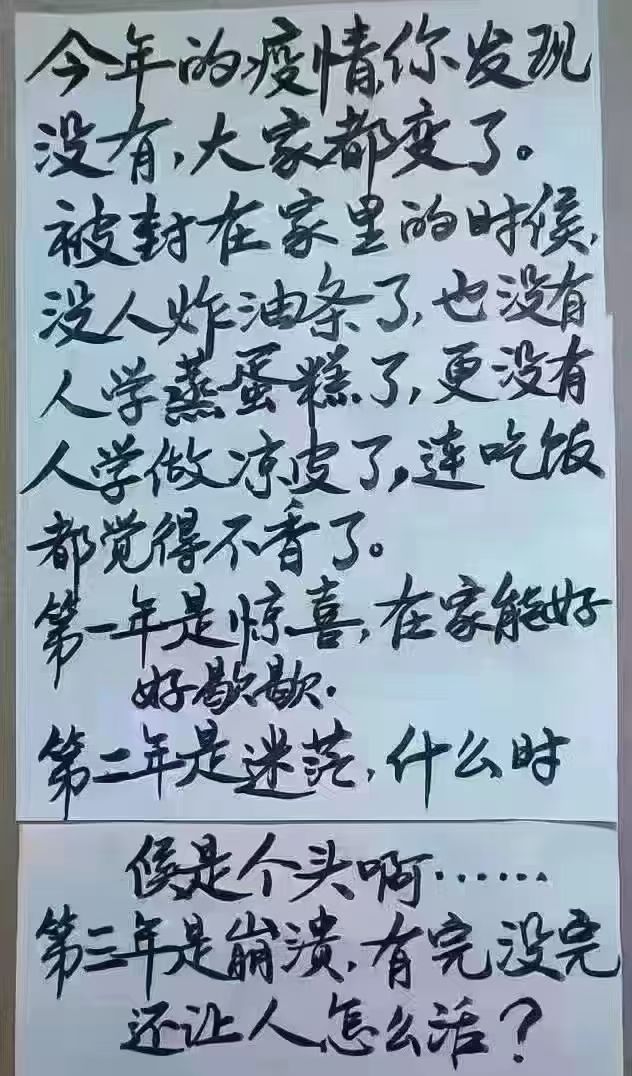 今年的疫情,你发现
没有,大家都变了。
被封在家里的时候,
没人炸油条了,也没有
人学蒸蛋糕了,更没有
人学做凉皮了,连吃饭
都觉得不香了。
第一年是惊喜,在家能好
好歇歇.
第二年是迷茫,什么时
候是个头啊……
第三年是崩溃,有完没完
还让人怎么活?